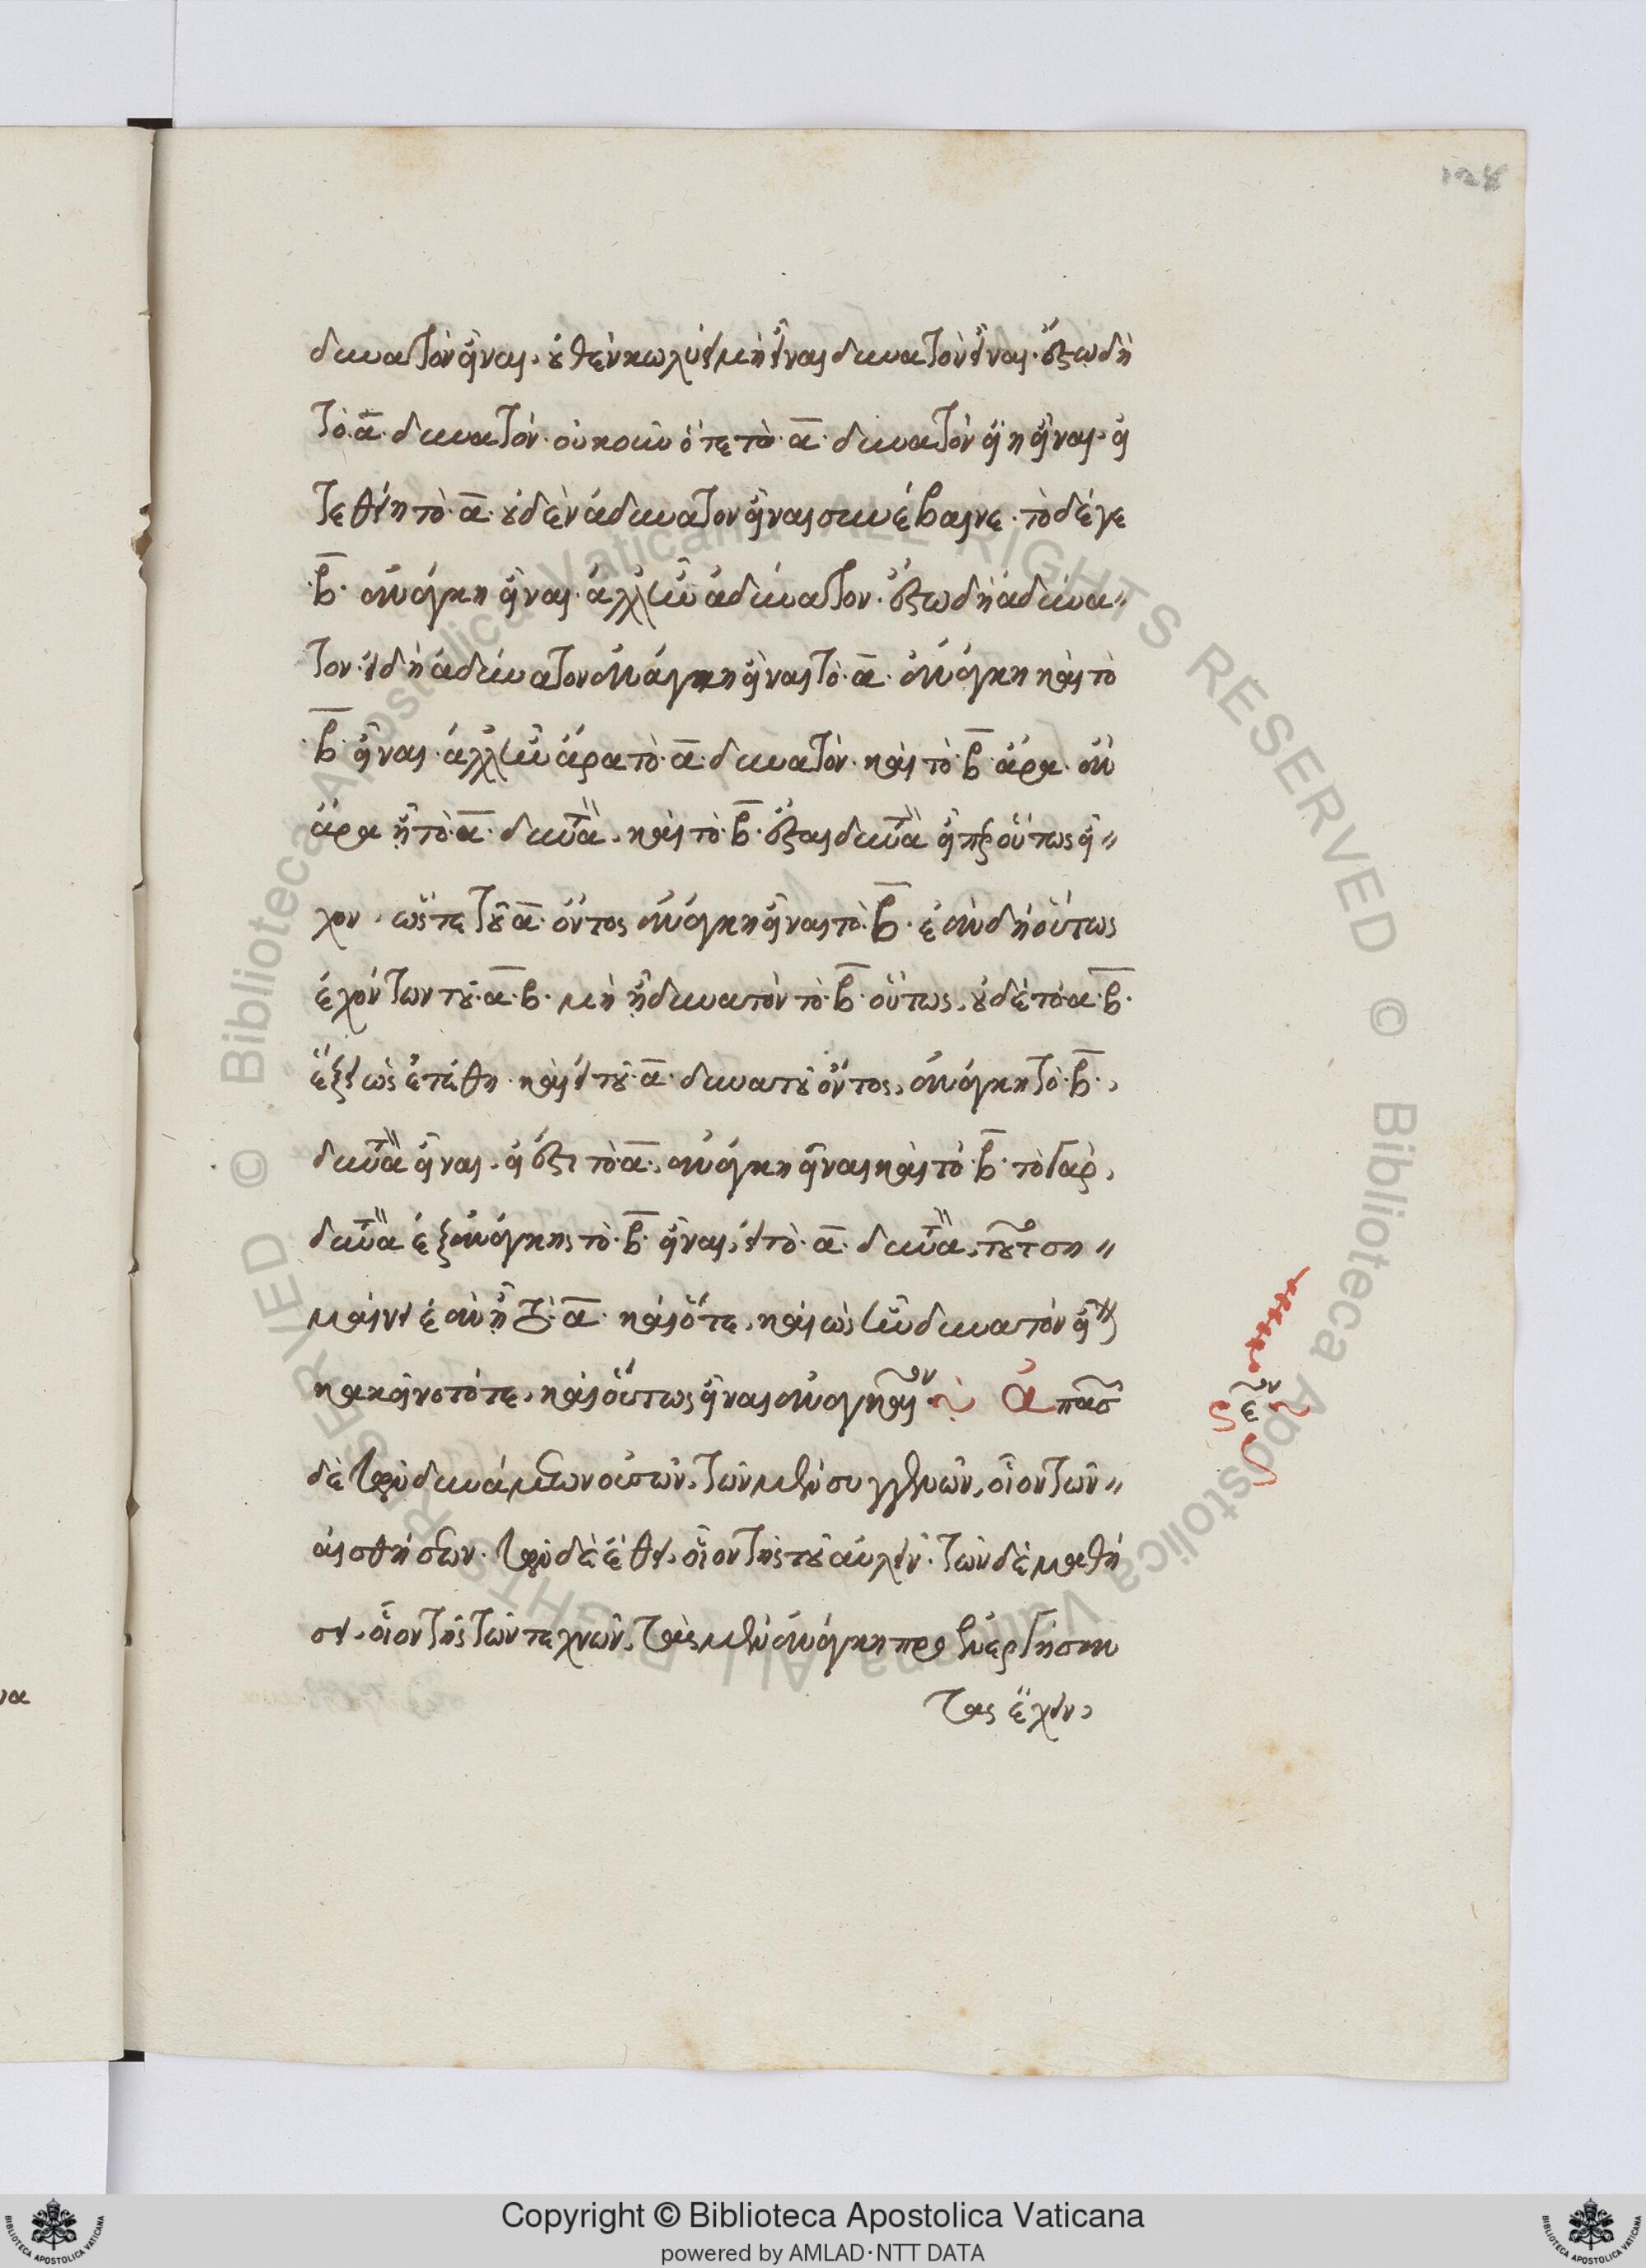 128
δυνατὸν εἶναι, οὐθὲν κωλύει μὴ εἶναι δυνατὸν εἶναι. ἔστω δὴ
τὸ α δυνατόν. οὐκοῦν ὅτε τὸ α δυνατὸν εἴη εἶναι, εἰ
τεθείη τὸ α οὐδὲν ἀδύνατον εἶναι συνέβαινε. τὸ δέ γε
β ἀνάγκη εἶναι. ἀλλ' ἦν ἀδύνατον. ἔστω δὴ ἀδύνα
τον. εἰ δὴ ἀδύνατον ἀνάγκη εἶναι τὸ α ἀνάγκη καὶ τὸ
β εἶναι. ἀλλ' ἦν ἄρα τὸ α δυνατόν. καὶ τὸ β ἄρα. ἂν
ἄρα ᾖ τὸ α δυνατὸν, καὶ τὸ β ἔσται δυνατὸν εἴπερ οὕτως εἶ
χον, ὥστε τοῦ α ὄντος ἀνάγκη εἶναι τὸ β. ἐὰν δὴ οὕτως
ἐχόντων τοῦ α β μὴ ᾖ δυνατὸν τὸ β οὕτως, οὐδὲ τὸ α β
ἕξει ὡς ἐτέθη. καὶ εἰ τοῦ α δυνατοῦ ὄντος, ἀνάγκη τὸ β,
δυνατὸν εἶναι, εἰ ἔστι τὸ α, ἀνάγκη εἶναι καὶ τὸ β. τὸ γὰρ,
δυνατὸν ἐξ ἀνάγκης τὸ β εἶναι, εἰ τὸ α δυνατὸν, τοῦτο ση
μαίνει ἐὰν ᾖ τὸ α καὶ ὅτε, καὶ ὡς ἦν δυνατὸν εἶναι
κἀκεῖνο τότε, καὶ οὕτως εἶναι ἀναγκαῖον. Ἁπασῶν
δὲ τῶν δυνάμεων οὐσῶν, τῶν μὲν συγγενῶν, οἷον τῶν
αἰσθήσεων. τῶν δὲ ἔθει, οἷον τῆς τοῦ αὐλεῖν. τῶν δὲ μαθή
σει, οἷον τῆς τῶν τεχνῶν, τὰς μὲν ἀνάγκη προενεργήσαν
τας ἔχειν,